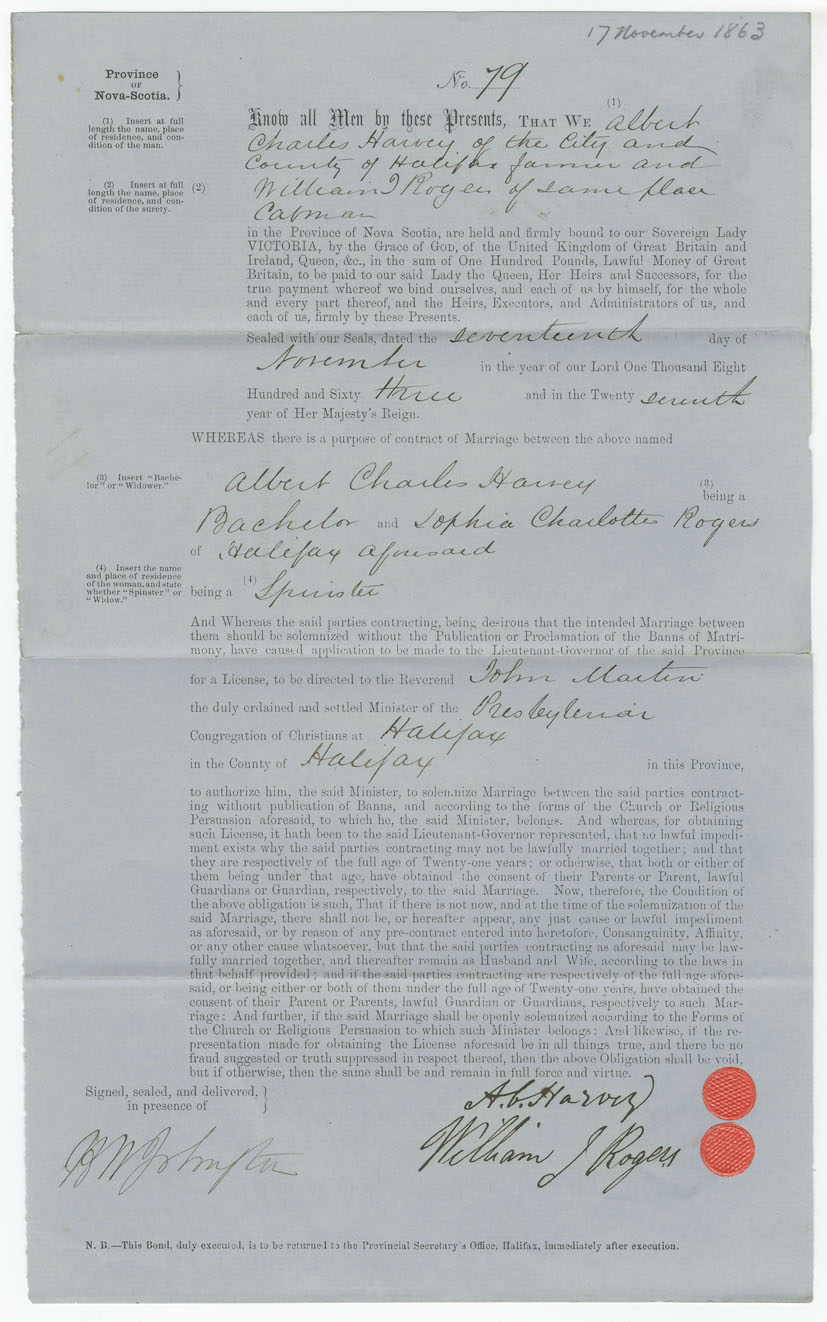 17 November 1863
Province
OF
Nova-Scotia.
No. 79
(1) Insert at full
length the name, place
of residence, and con-
dition of the man.
(1)
Know all Men by these Presents, THAT WE Albert
Charles Harvey of the City and
County of Halifax farmer and
(2) Insert at full
length the name, place
of residence, and con-
dition of the surety.
(2) William J Rogers of same place
Cabman
in the Province of Nova Scotia, are held and firmly bound to our Sovereign Lady
VICTORIA, by the Grace of GOD, of the United Kingdom of Great Britain and
Ireland, Queen, &c., in the sum of One Hundred Pounds, Lawful Money of Great
Britain, to be paid to our said Lady the Queen, Her Heirs and Successors, for the
true payment whereof we bind ourselves, and each of us by himself, for the whole
and every part thereof, and the Heirs, Executors, and Administrators of us, and
each of us, firmly by these Presents.
Sealed with our Seals, dated the seventeenth day of
November in the year of our Lord One Thousand Eight
Hundred and Sixty three and in the Twenty seventh
year of Her Majesty's Reign.
WHEREAS there is a purpose of contract of Marriage between the above named
(3) Insert "Bache-
lor" or "Widower."
Albert Charles Harvey (3)
being a
Bachelor and Sophia Charlotte Rogers
of Halifax aforesaid
(4) Insert the name
and place of residence
of the woman, and state
whether "Spinster" or
"Widow."
being a (4) Spinster
And Whereas the said parties contracting, being desirous that the intended Marriage between
them should be solemnized without the Publication or Proclamation of the Banns of Matri-
mony, have caused application to be made to the Lieutenant-Governor of the said Province
for a License, to be directed to the Reverend John Martin
the duly ordained and settled Minister of the Presbyterian
Congregation of Christians at Halifax
in the County of Halifax in this Province,
to authorize him, the said Minister, to solemnize Marriage between the said parties contract-
ing without publication of Banns, and according to the forms of the Church or Religious
Persuasion aforesaid, to which he, the said Minister, belongs. And whereas, for obtaining
such License, it hath been to the said Lieutenant-Governor represented, that no lawful impedi-
ment exists why the said parties contracting may not be lawfully married together; and that
they are respectively of the full age of Twenty-one years; or otherwise, that both or either of
them being under that age, have obtained the consent of their Parents or Parent, lawful
Guardians or Guardian, respectively, to the said Marriage. Now, therefore, the Condition of
the above obligation is such, That if there is not now, and at the time of the solemnization of the
said Marriage, there shall not be, or hereafter appear, any just cause or lawful impediment
as aforesaid, or by reason of any pre-contract entered into heretofore, Consanguinity, Affinity,
or any other cause whatsoever, but that the said parties contracting as aforesaid may be law-
fully married together, and thereafter remain as Husband and Wife, according to the laws in
that behalf provided; and if the said parties contracting are respectively of the full age afore-
said, or being either or both of them under the full age of Twenty-one years, have obtained the
consent of their Parent or Parents, lawful Guardian or Guardians, respectively to such Mar-
riage: And further, if the said Marriage shall be openly solemnized according to the Forms of
the Church or Religious Persuasion to which such Minister belongs: And likewise, if the re-
presentation made for obtaining the License aforesaid be in all things true, and there be no
fraud suggested or truth suppressed in respect thereof, then the above Obligation shall be void,
but if otherwise, then the same shall be and remain in full force and virtue.
Signed, sealed, and delivered,
in presence of
A. C. Harvey
William J Rogers
N. B.—This Bond, duly executed, is to be returned to the Provincial Secretary's Office, Halifax, immediately after execution.